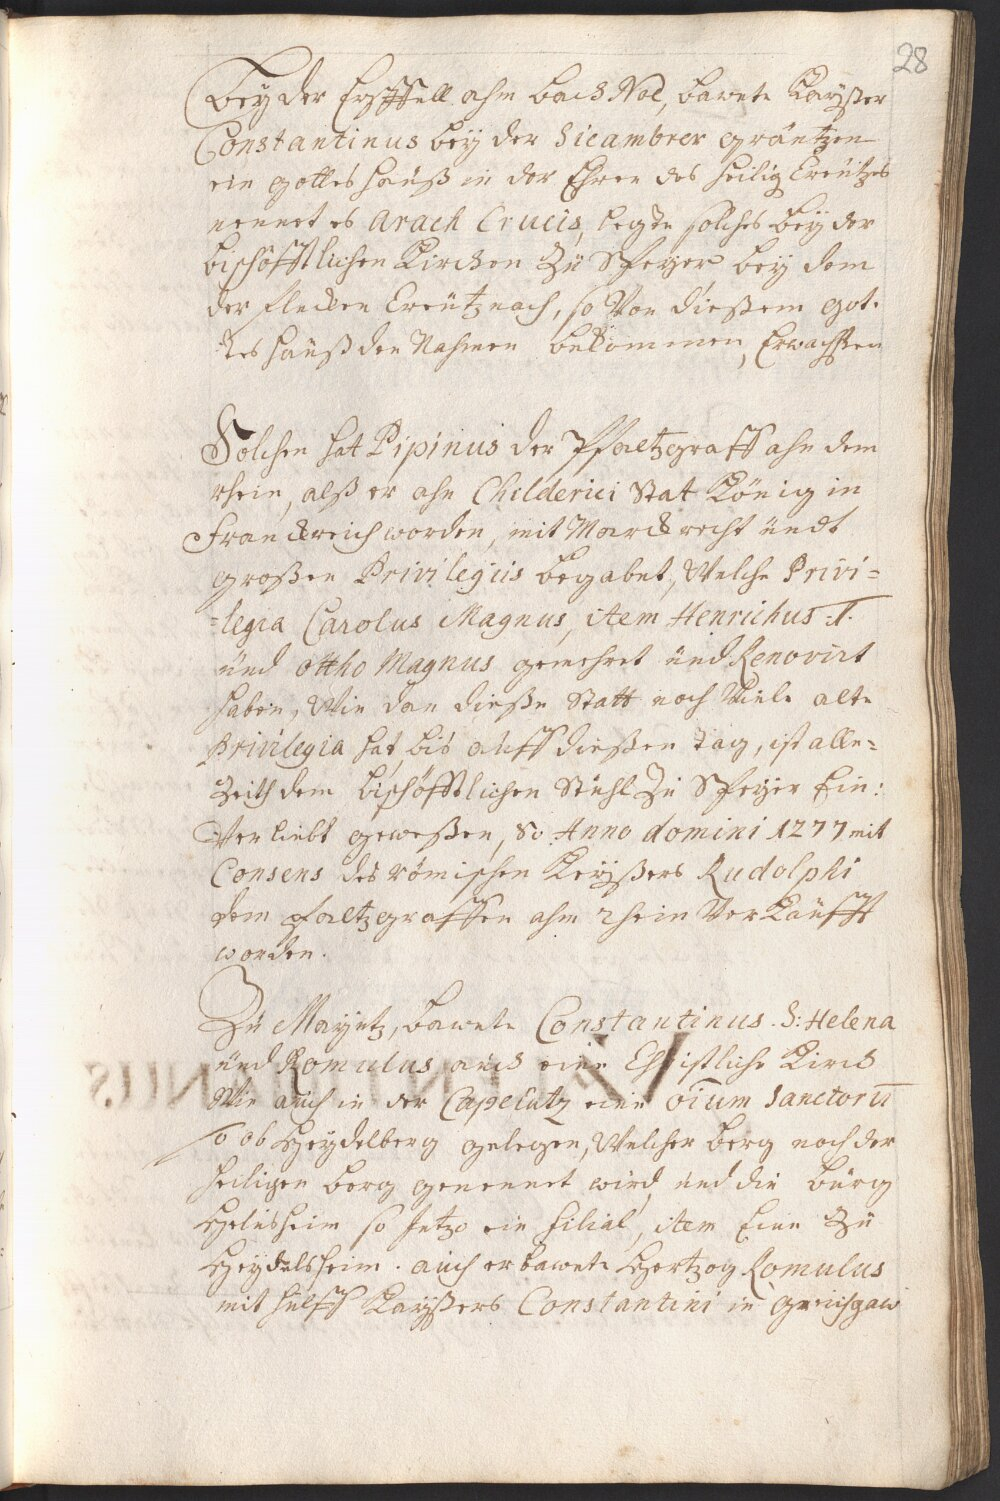 28
Bey der Erststell ahm bach Noe, bawete Kayßer
Constantinus bey der Sicambrer gräntzen
ein gottes hauß in der Ehren des heilig Creützes
nennet es Arach Crucis, legte solches bey der
bischöfftlichen Kirchen Zu Speyer bey dem
der flecken Creütznach, so Von dießem got-
tes hauß den Nahmen bekommen, Erwachßen
Solchen hat Pipinus der Pfaltzgraff ahn dem
rhein, alß er ahn Childerici Stat König in
Franckreich worden, mit Marck recht undt
großen Privilegiis begabet, Welche Privi=
=legia Carolus Magnus, item Henrichus .I.
und Ottho Magnus gemehret und Renovirt
haben, Wie dan dieße Statt noch Viele alte
Privilegia hat, bis auff dießen tag, ist alle=
Zeith dem bischöfftlichen Stuhl Zu Speyer Ein:
Verliebt geweßen, So Anno domini 1277 mit
Consens des römischen Keyßers Rudolphi
dem pfaltzgraffen ahm rhein Verkaufft
worden.
Zu Mayntz, bawete Constantinus. S: Helena
und Romulus auch eine Christliche Kirch
Wie auch in der Capel eine oium Sanctorū
so ob Heydelberg gelegen, Welcher berg noch der
heiligen berg genennet wird und die burg
Helisheim so Jetzo ein filial, item Eine Zu
Heydelsheim. auch erbawete Hertzog Romulus
mit hülff Kayßers Constantini in Greichgaw